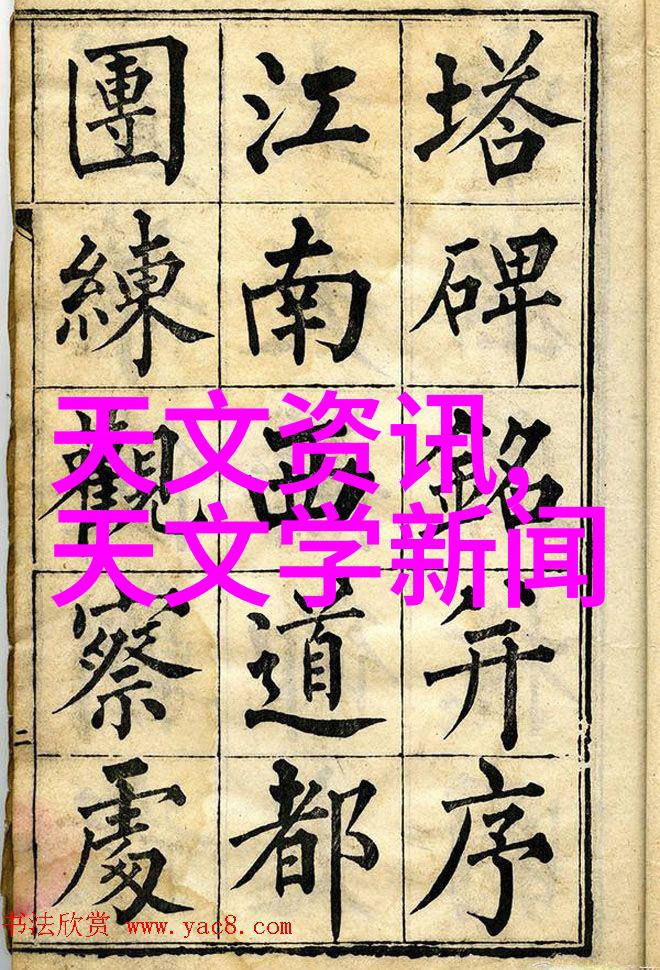 塔碑銘并序
江南西道都
團練觀察處
二
天文资讯,
天文学新闻
书法欣赏 www.yac8.com